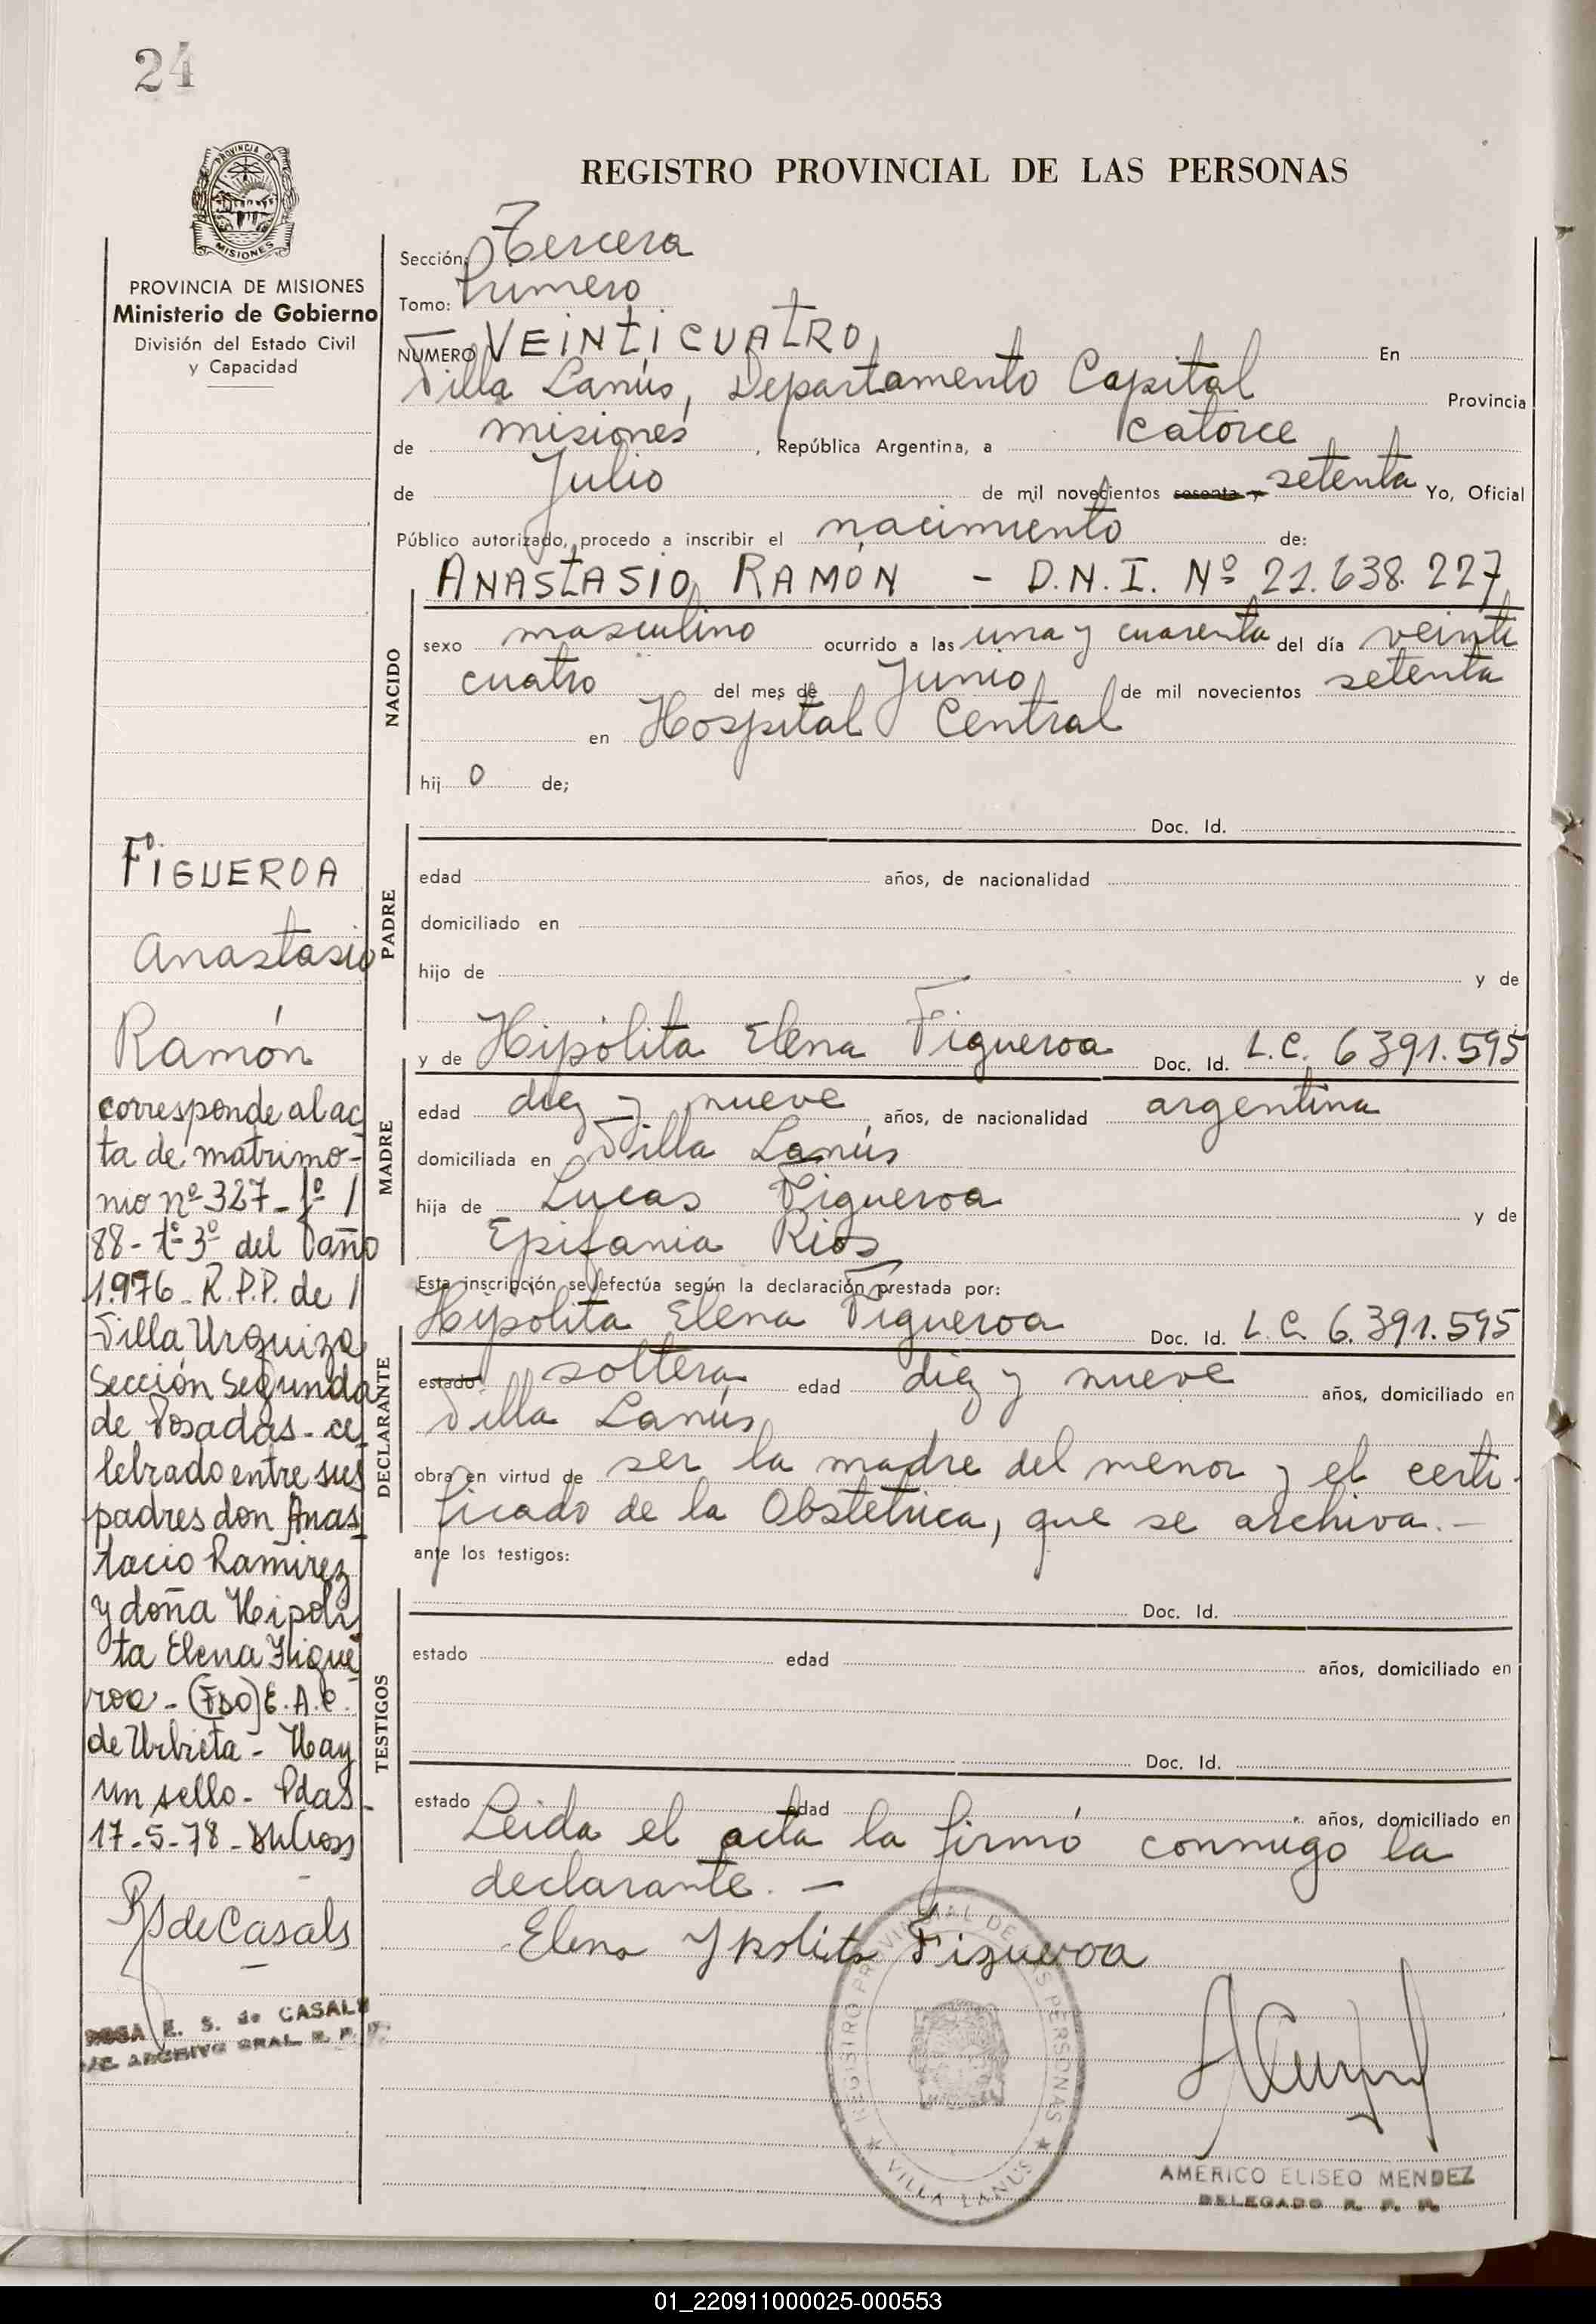 24
PROVINCIA DE
MISIONES
PROVINCIA DE MISIONES
Ministerio de Gobierno
División del Estado Civil
y Capacidad
REGISTRO PROVINCIAL DE LAS PERSONAS
Sección: Tercera
Tomo: Primero
NUMERO VEINTICUATRO En
Villa Lanús, Departamento Capital Provincia
de misiones, República Argentina, a catorce
de Julio de mil novecientos sesenta y setenta Yo, Oficial
Público autorizado, procedo a inscribir el nacimiento de:
ANASTASIO RAMÓN - D.N.I. Nº 21.638.227
NACIDO
sexo masculino ocurrido a las una y cuarenta del día veinti
cuatro del mes de Junio de mil novecientos setenta
en Hospital Central
hij o de;
PADRE
Doc. Id.
edad años, de nacionalidad
domiciliado en
hijo de y de
MADRE
y de Hipólita Elena Figueroa Doc. Id. L.C. 6391.595
edad diez y nueve años, de nacionalidad argentina
domiciliada en Villa Lanús
hija de Lucas Figueroa y de
Epifania Rios
Esta inscripción se efectúa según la declaración prestada por:
DECLARANTE
Hipolita Elena Figueroa Doc. Id. L.C. 6.391.595
estado soltera edad diez y nueve años, domiciliado en
Villa Lanús
obra en virtud de ser la madre del menor y el certi-
ficado de la Obstetrica, que se archiva.-
ante los testigos:
TESTIGOS
Doc. Id.
estado edad años, domiciliado en
Doc. Id.
estado edad años, domiciliado en
Leida el acta la firmó conmigo la
declarante. -
Elena Ypolita Figueroa
REGISTRO PROVINCIAL DE LAS PERSONAS
VILLA LANUS
AMERICO ELISEO MENDEZ
DELEGADO R. P. P.
FIGUEROA
Anastasio
Ramón
corresponde al ac
ta de matrimo-
nio nº 327- fº /
88- tº 3º del año
1.976- R.P.P. de /
Villa Urquiza
Sección Segunda
de Posadas- ce
lebrado entre sus
padres don Anas
tacio Ramirez
y doña Hipoli
ta Elena Figue
roa- (Fdo) E.A.C.
de Urbieta- Hay
un sello- Pdas-
17-5-78-
RS de Casals
ROSA E. S. de CASALS
ARCHIVO GRAL. R. P. P.
01_220911000025-000553